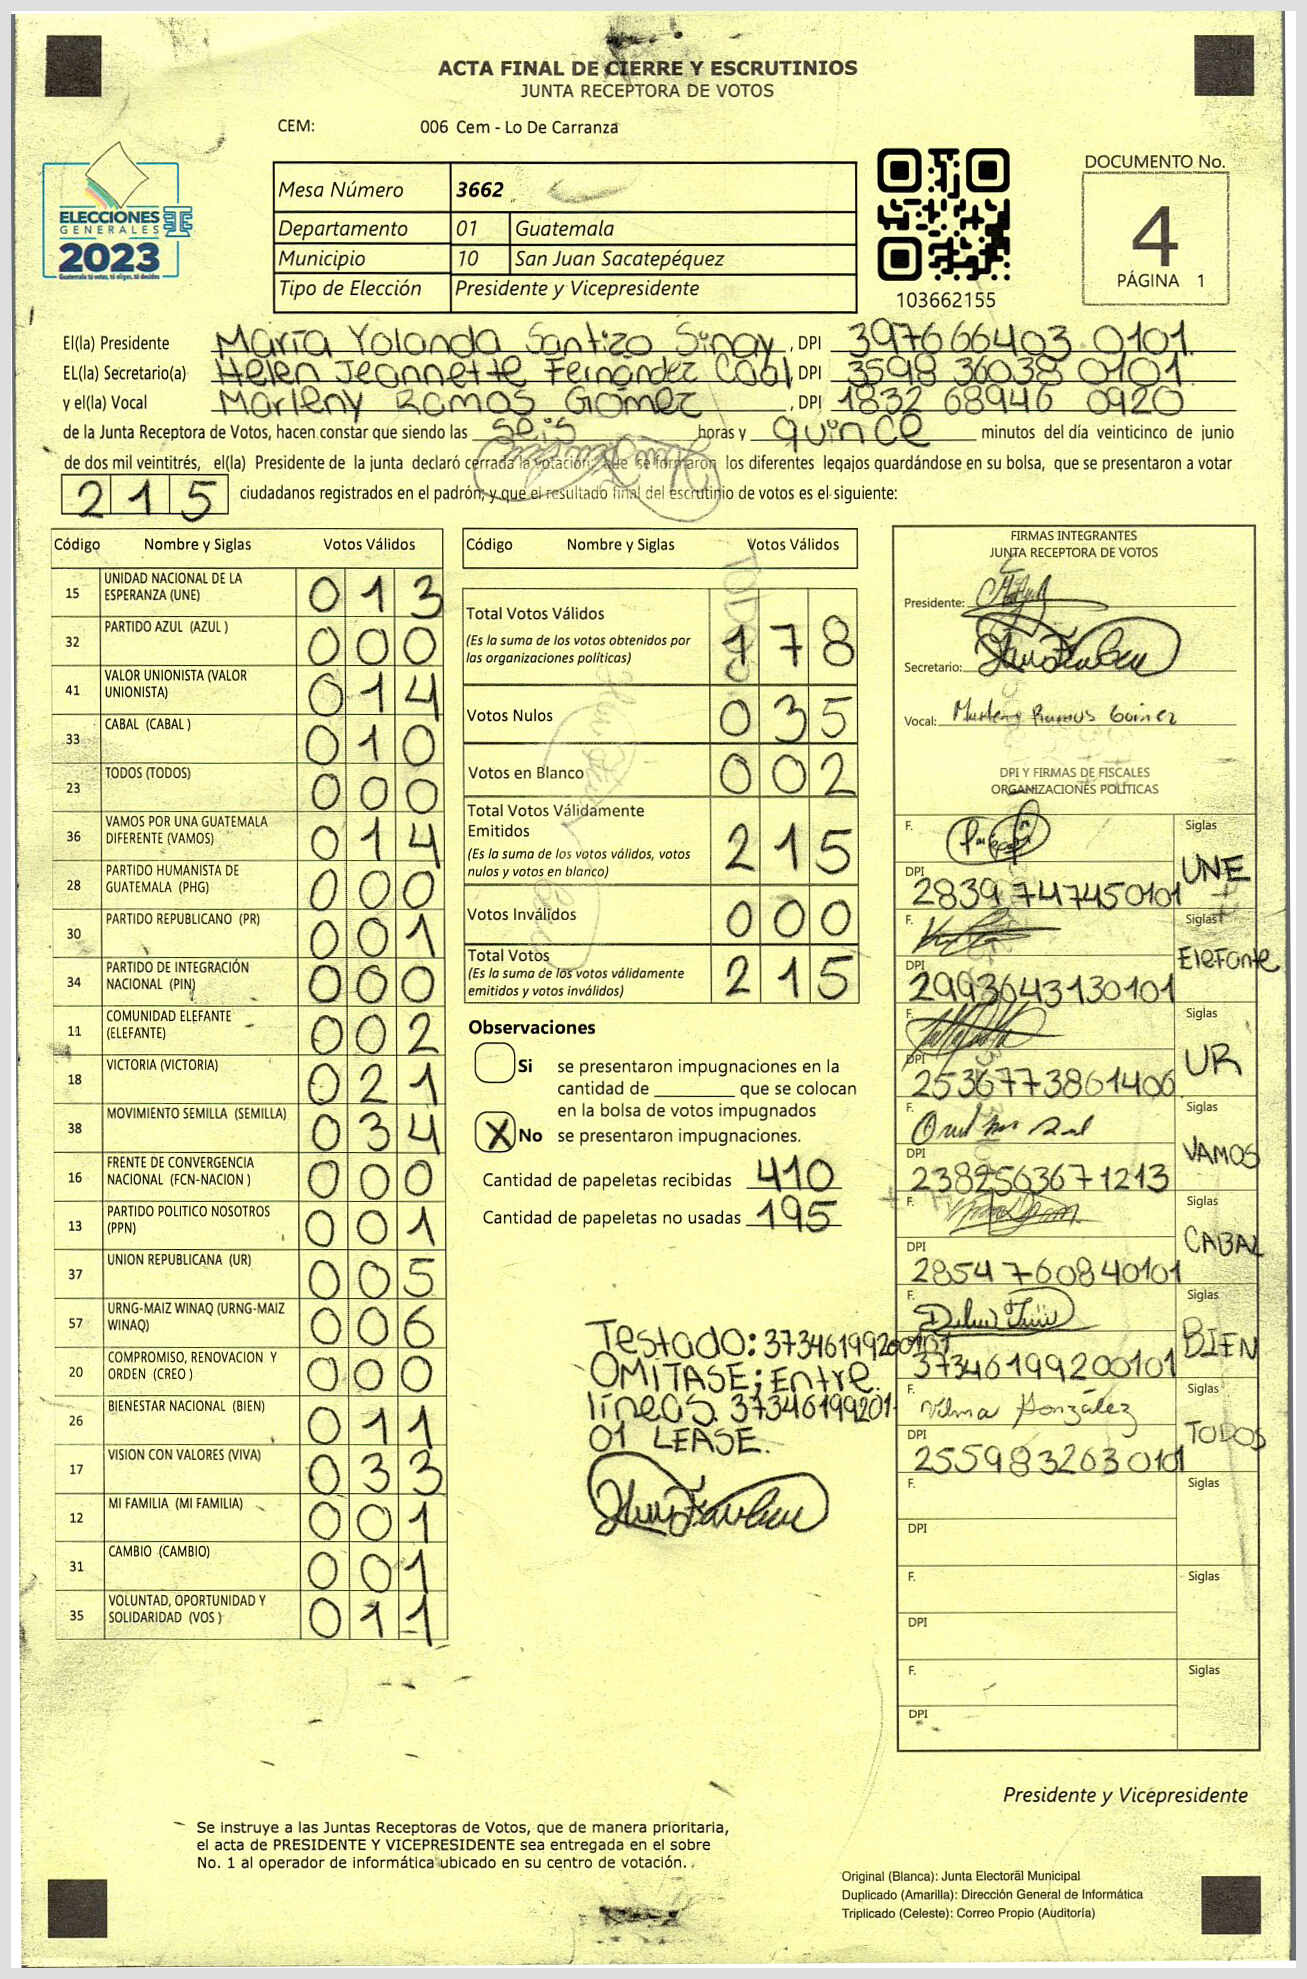 ACTA FINAL DE CIERRE Y ESCRUTINIOS
JUNTA RECEPTORA DE VOTOS
CEM: 006 Cem - Lo De Carranza
ELECCIONES
GENERALES TSE
2023
Guatemala tú votas, tú eliges, tú decides
Mesa Número 3662
Departamento 01 Guatemala
Municipio 10 San Juan Sacatepéquez
Tipo de Elección Presidente y Vicepresidente
103662155
DOCUMENTO No.
4
PÁGINA 1
El(la) Presidente María Yolanda Santizo Sinay, DPI 397666403 0101
EL(la) Secretario(a) Helen Jeannette Fernández Cabl, DPI 3598 36038 0101
y el(la) Vocal Marleny Ramos Gómez, DPI 1832 68946 0920
de la Junta Receptora de Votos, hacen constar que siendo las seis horas y quince minutos del día veinticinco de junio
de dos mil veintitrés, el(la) Presidente de la junta declaró cerrada la votación; que se formaron los diferentes legajos guardándose en su bolsa, que se presentaron a votar
215 ciudadanos registrados en el padrón; y que el resultado final del escrutinio de votos es el siguiente:
Código Nombre y Siglas Votos Válidos
15 UNIDAD NACIONAL DE LA ESPERANZA (UNE) 013
32 PARTIDO AZUL (AZUL ) 000
41 VALOR UNIONISTA (VALOR UNIONISTA) 014
33 CABAL (CABAL ) 010
23 TODOS (TODOS) 000
36 VAMOS POR UNA GUATEMALA DIFERENTE (VAMOS) 014
28 PARTIDO HUMANISTA DE GUATEMALA (PHG) 000
30 PARTIDO REPUBLICANO (PR) 001
34 PARTIDO DE INTEGRACIÓN NACIONAL (PIN) 000
11 COMUNIDAD ELEFANTE (ELEFANTE) 002
18 VICTORIA (VICTORIA) 021
38 MOVIMIENTO SEMILLA (SEMILLA) 034
16 FRENTE DE CONVERGENCIA NACIONAL (FCN-NACION ) 000
13 PARTIDO POLITICO NOSOTROS (PPN) 001
37 UNION REPUBLICANA (UR) 005
57 URNG-MAIZ WINAQ (URNG-MAIZ WINAQ) 006
20 COMPROMISO, RENOVACION Y ORDEN (CREO ) 000
26 BIENESTAR NACIONAL (BIEN) 011
17 VISION CON VALORES (VIVA) 033
12 MI FAMILIA (MI FAMILIA) 001
31 CAMBIO (CAMBIO) 001
35 VOLUNTAD, OPORTUNIDAD Y SOLIDARIDAD (VOS ) 011
Código Nombre y Siglas Votos Válidos
Total Votos Válidos 178
(Es la suma de los votos obtenidos por
las organizaciones políticas)
Votos Nulos 035
Votos en Blanco 002
Total Votos Válidamente
Emitidos 215
(Es la suma de los votos válidos, votos
nulos y votos en blanco)
Votos Inválidos 000
Total Votos 215
(Es la suma de los votos válidamente
emitidos y votos inválidos)
Observaciones
Si se presentaron impugnaciones en la
cantidad de ________ que se colocan
en la bolsa de votos impugnados
X No se presentaron impugnaciones.
Cantidad de papeletas recibidas 410
Cantidad de papeletas no usadas 195
Testado: 37346199200101
OMITASE; Entre
líneas. 37346199201-
01 LEASE.
FIRMAS INTEGRANTES
JUNTA RECEPTORA DE VOTOS
Presidente:
Secretario:
Vocal: Marleny Ramos Gómez
DPI Y FIRMAS DE FISCALES
ORGANIZACIONES POLÍTICAS
F. Siglas UNE
DPI 2839747450101
F. Siglas Elefante
DPI 2993643130101
F. Siglas UR
DPI 2536773861406
F. Siglas VAMOS
DPI 2382563671213
F. Siglas CABAL
DPI 2854760840101
F. Siglas BIEN
DPI 37346199200101
F. Vilma González Siglas TODOS
DPI 2559832630101
F. Siglas
DPI
F. Siglas
DPI
F. Siglas
DPI
Presidente y Vicepresidente
Se instruye a las Juntas Receptoras de Votos, que de manera prioritaria,
el acta de PRESIDENTE Y VICEPRESIDENTE sea entregada en el sobre
No. 1 al operador de informática ubicado en su centro de votación.
Original (Blanca): Junta Electoral Municipal
Duplicado (Amarilla): Dirección General de Informática
Triplicado (Celeste): Correo Propio (Auditoría)